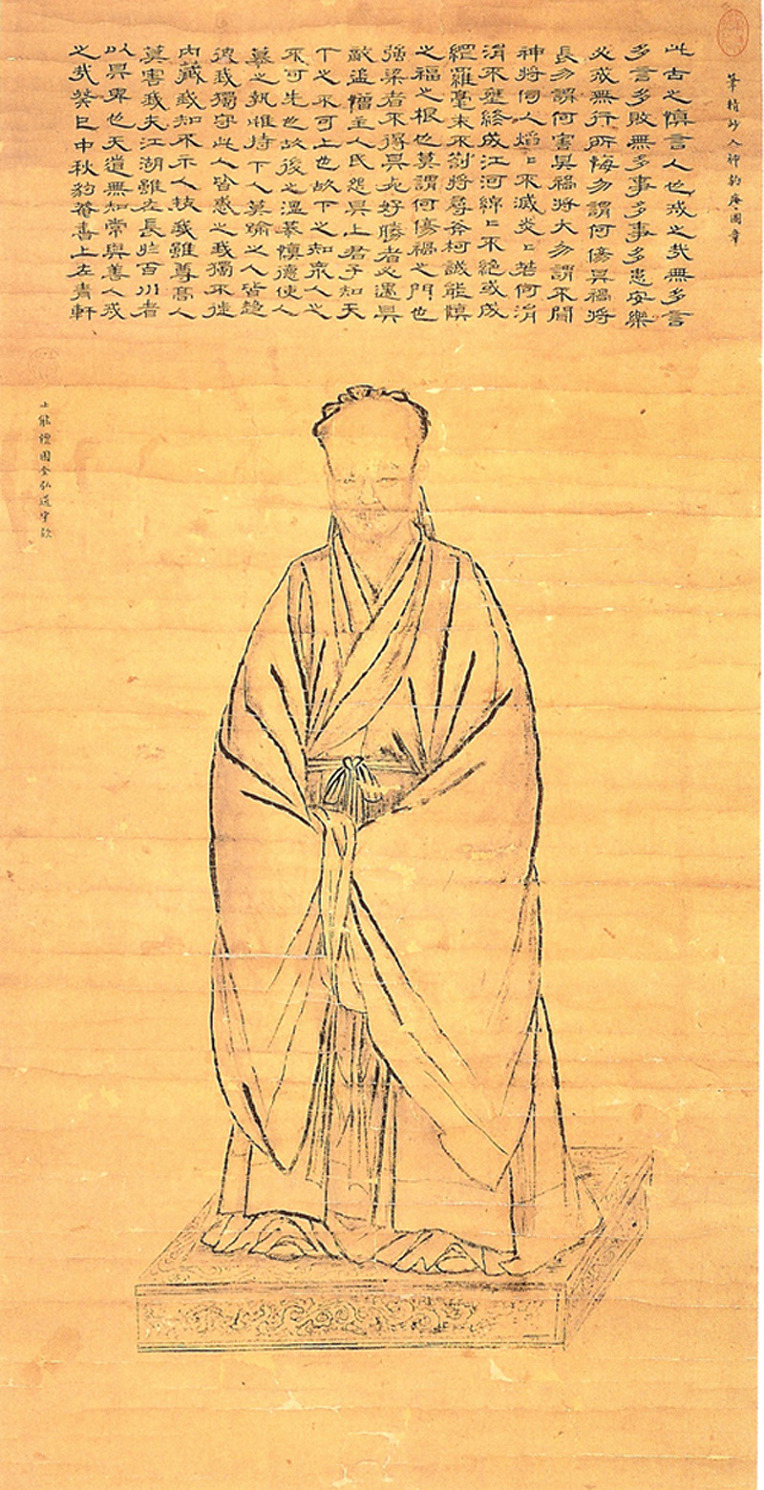 筆精妙入神豹菴圖章
此古之慎言人也戒之哉無多言
多言多敗無多事多事多患安樂
必戒無行所悔勿謂何傷其禍將
長勿謂何害其禍將大勿謂不聞
神將伺人焰〻不滅炎〻若何涓
涓不壅終成江河綿〻不絕或成
網羅毫末不劄將尋斧柯誠能慎
之福之根也莫謂何傷禍之門也
強梁者不得其死好勝者必遇其
敵盜憎主人民怨其上君子知天
下之不可上也故下之知衆人之
不可先也故後之溫恭慎德使人
慕之執雌持下人莫踰之人皆趨
彼我獨守此人皆惑之我獨不徙
內藏我知不示人技我雖尊高人
莫害我夫江湖雖左長於百川者
以其卑也天道無知常與善人戒
之哉癸巳中秋豹菴書上左青軒
士能檀園金弘道字款